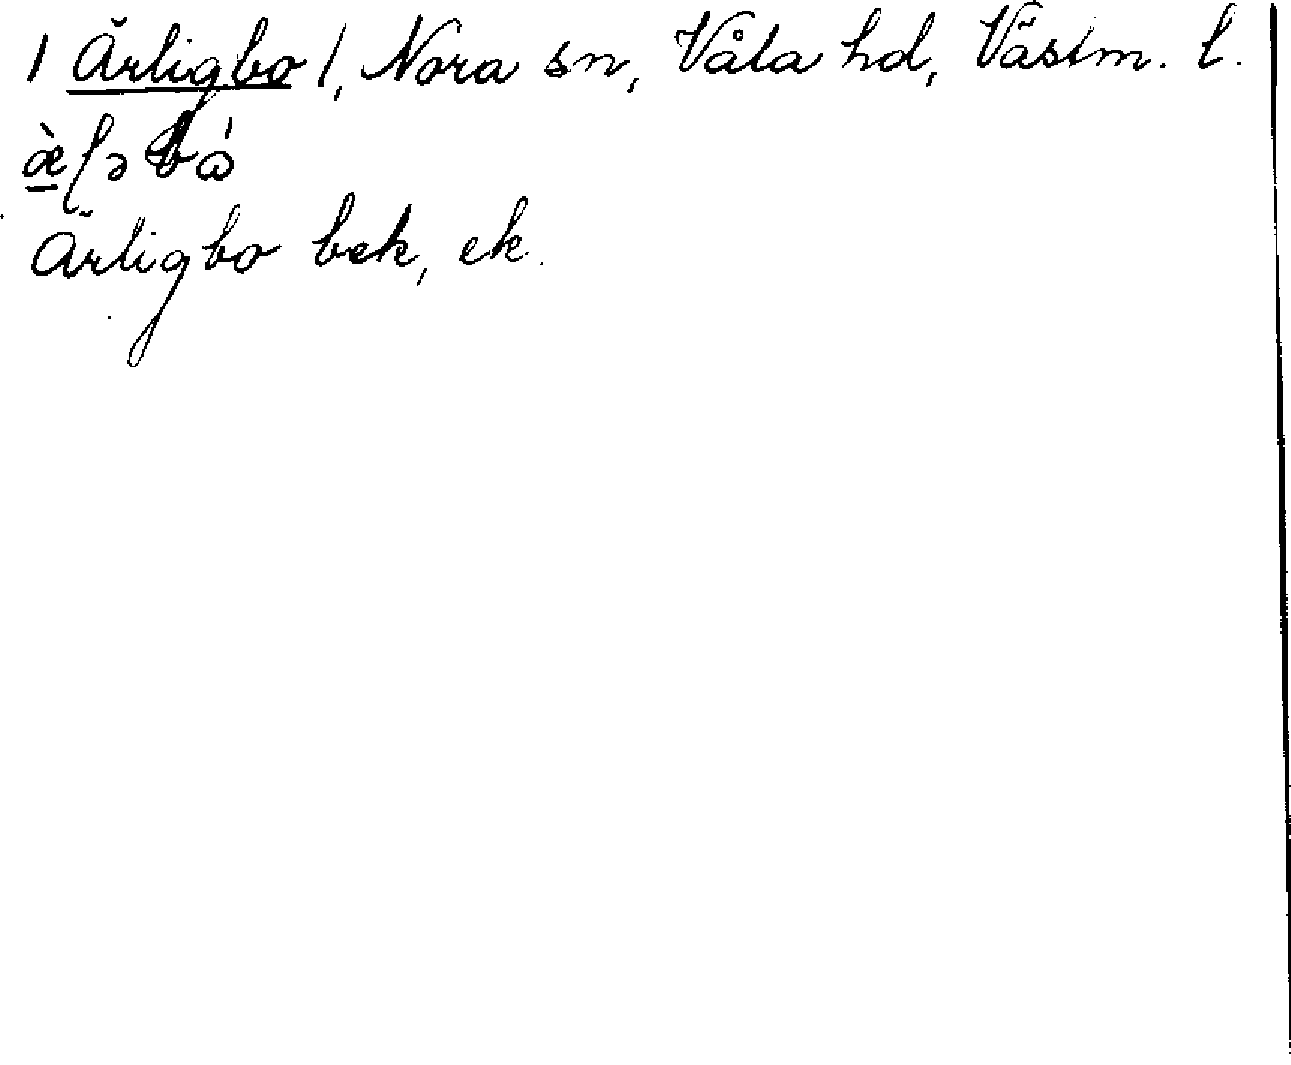 / Ärligbo /, Nora sn, Våla hd, Västm. l.
Ärligbo bek, ek.